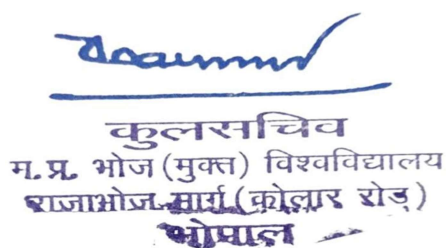 कुलसचिव
म. प्र. भोज (मुक्त) विश्वविद्यालय
राजाभोज मार्ग (कोलार रोड़)
भोपाल